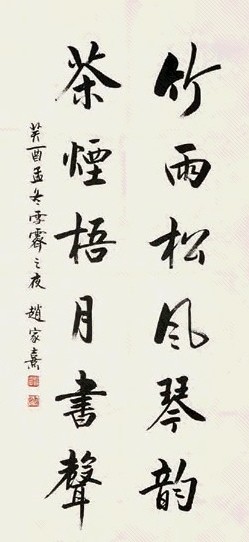 竹雨松风琴韵
茶煙梧月書聲
癸酉孟冬雪霽之夜 趙家熹